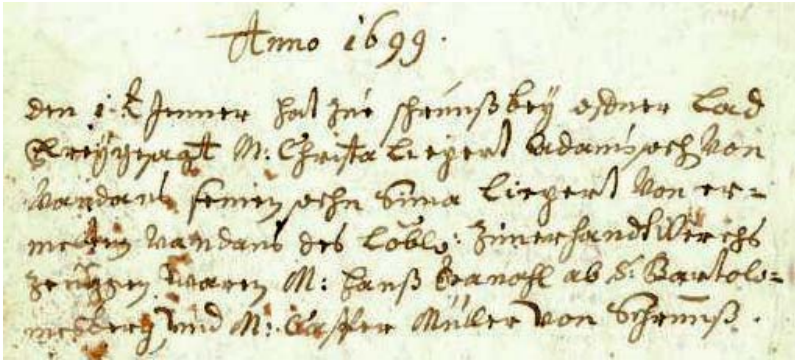 Anno 1699.
den 1.t Jenner hat zue schrunß bey offner Lad
Freygesagt M: Christa Liepert Adams sohn Von
Vandans seinen sohn Sima Liepert Von er=
melten Vandans des Löbl: Zimerhandtwerchs
Zeügen waren M: Hanß Ganahl ab S: Bartolo=
meeberg Vnd M: Casper Müller Von Schrunß.